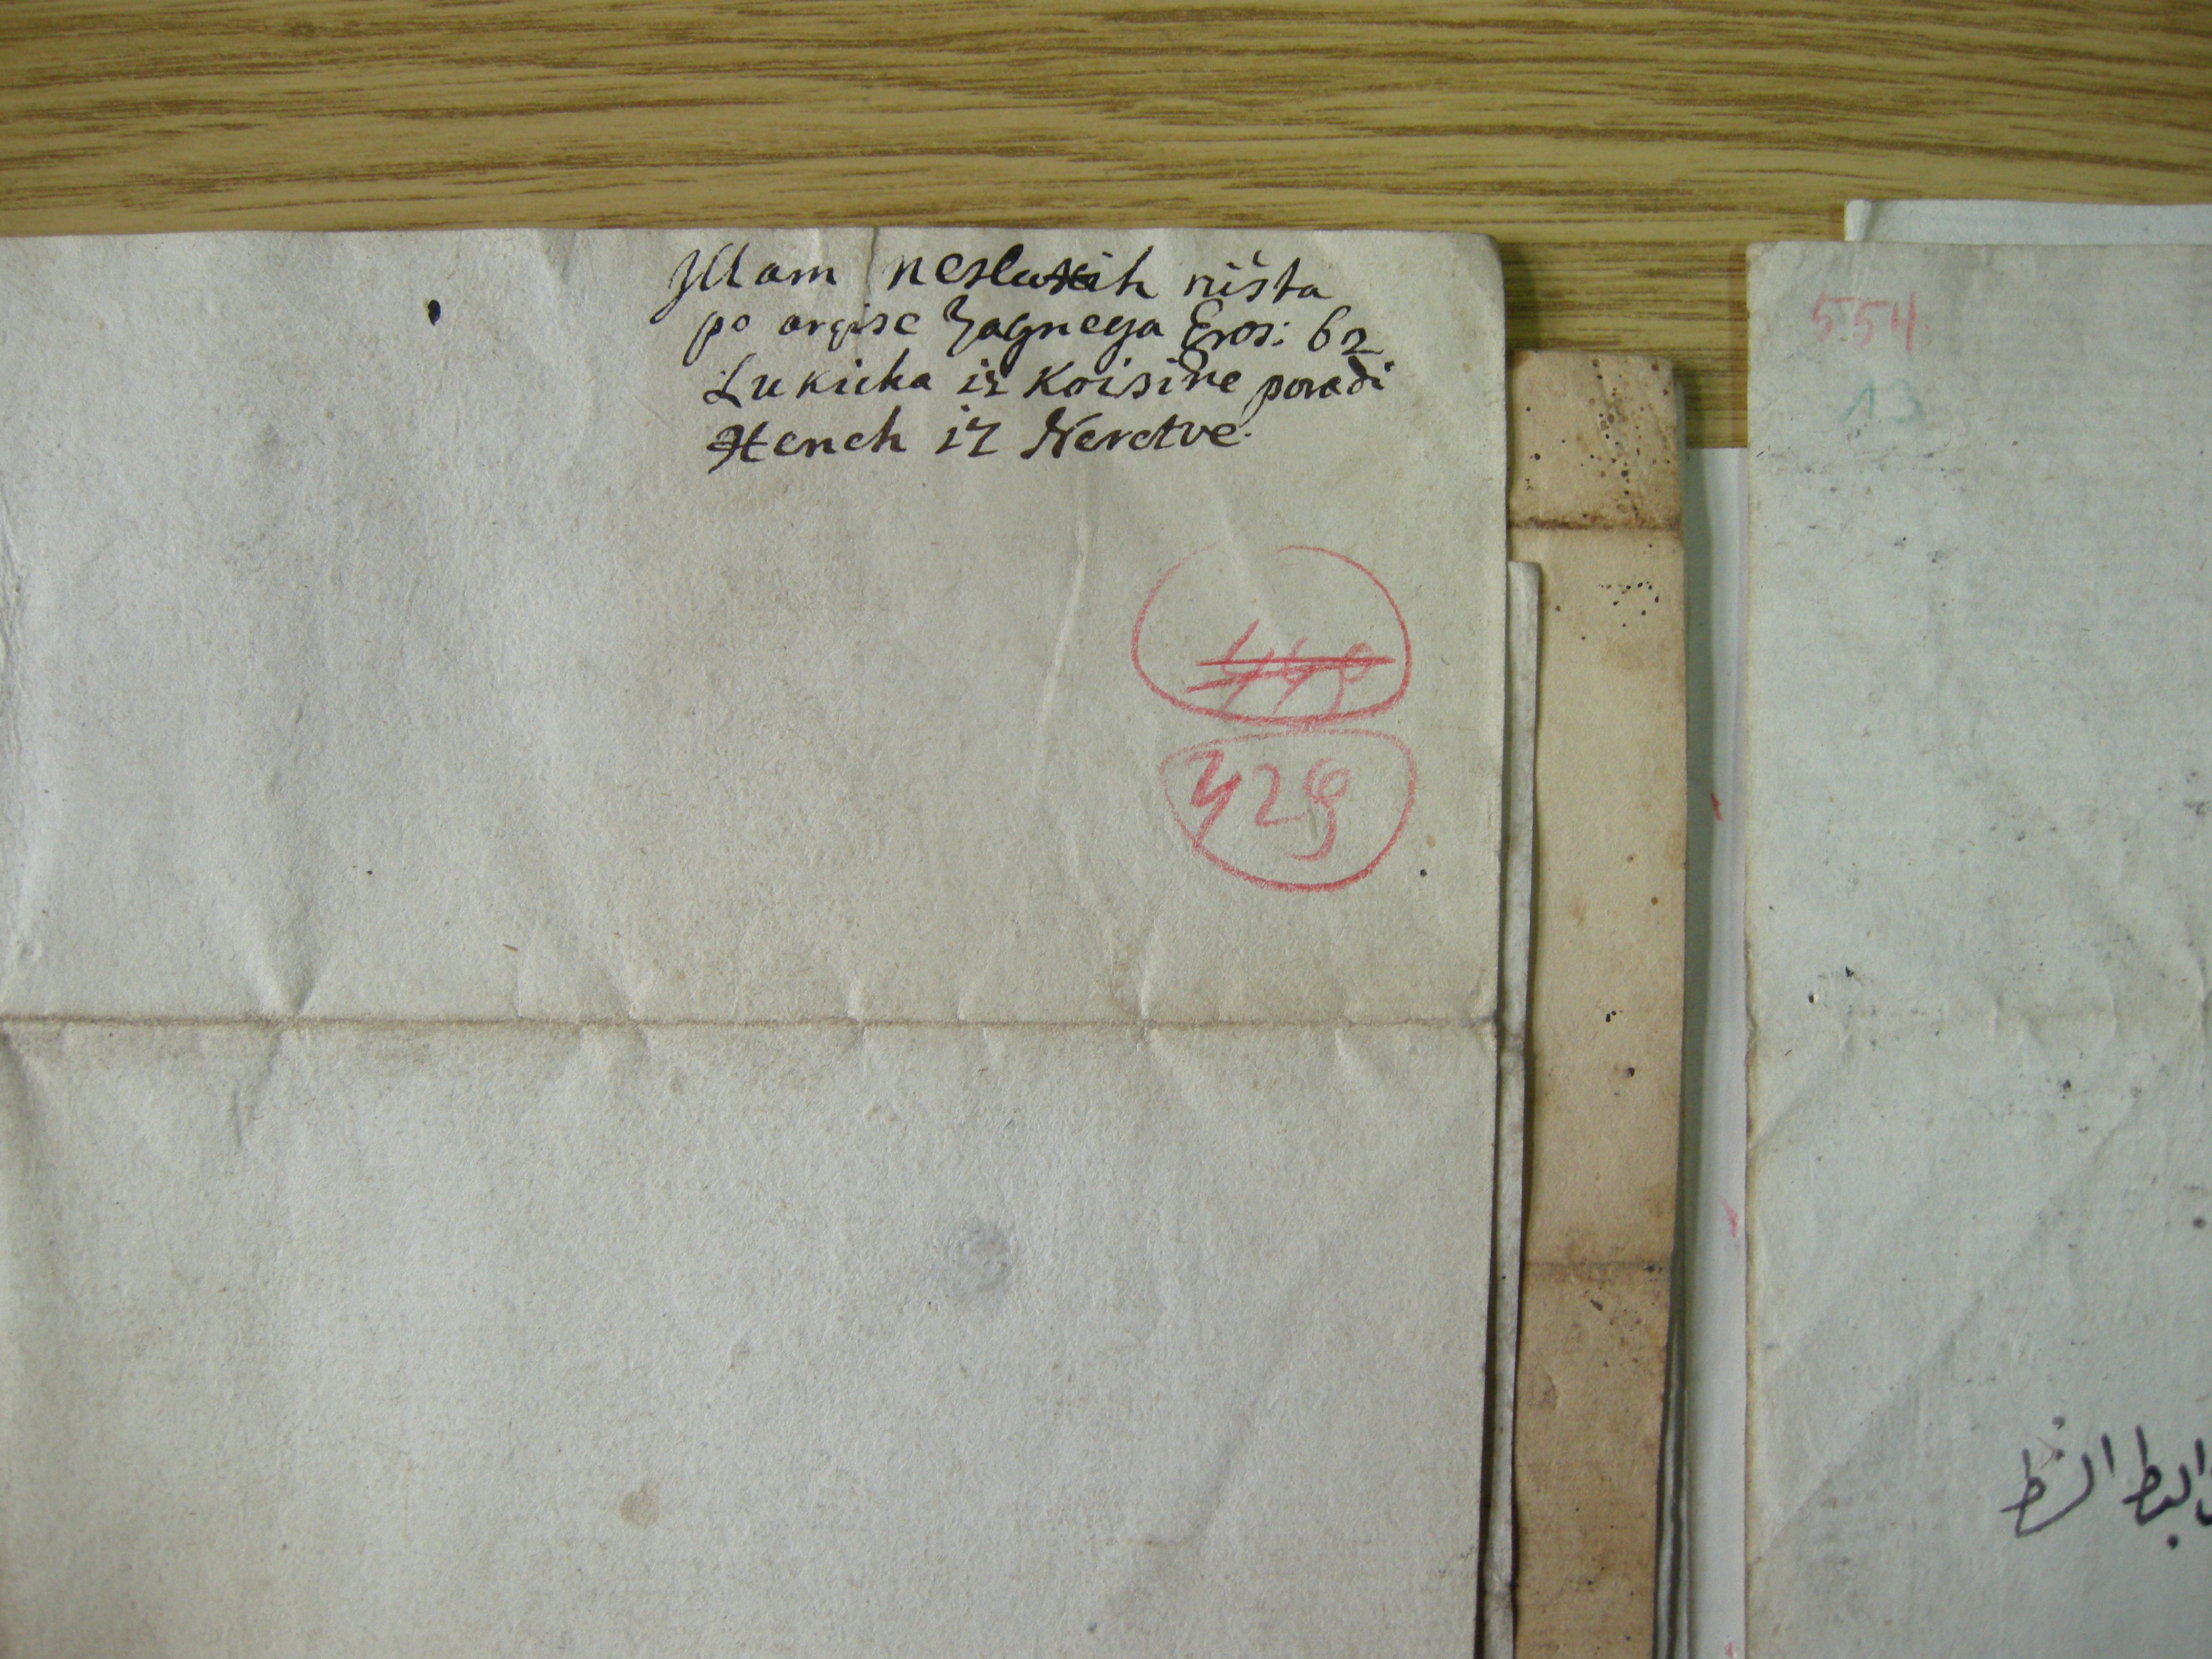 Ilam neslusih ništa
po argise Zagnega Eros: 62
Lukicha iz Koisine poradi
Hench iz Neretve.
449
429
554
13